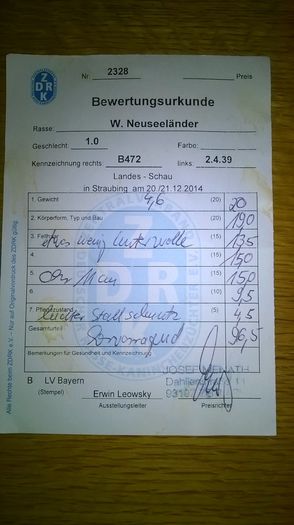 Z
DRK
Nr. 2328 Preis
Bewertungsurkunde
Rasse: W. Neuseeländer
Geschlecht: 1.0 Farbe:
Kennzeichnung rechts B472 links: 2.4.39
Landes - Schau
in Straubing am 20./21.12.2014
1. Gewicht 4,6 (20) 20
2. Körperform, Typ und Bau (20) 19,0
3. Fellhaar etwas wenig Unterwolle (15) 13,5
4. (15) 15,0
5. (15) 15,0
6. (10) 9,5
7. Pflegezustand leichter Stallschmutz (5) 4,5
Gesamturteil hervorragend 96,5
Bemerkungen für Gesundheit und Kennzeichnung
B LV Bayern
(Stempel)
Erwin Leowsky
Ausstellungsleiter Preisrichter
Alle Rechte beim ZDRK e.V. - Nur auf Originalvordruck des ZDRK gültig